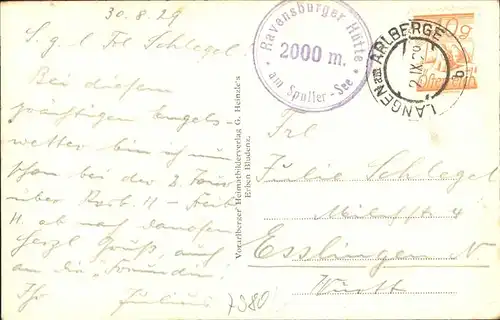 30.8.29
S. g. l. Frl. Schlegel.
Bei diesem
prächtigen Engels-
wetter bin ich nun
schon bei der 2. Tour
über
ab nach
herzl. Gruß, auch
an die
Ihr Julius
7380
Ravensburger Hütte
2000 m.
am Spuller-See
LANGEN am ARLBERGE
2.IX.29
b
10g
Österreich
Vorarlberger Heimatbilderverlag G. Heinzle's
Erben Bludenz.
Frl
Julie Schlegel
4
Esslingen N
Württ